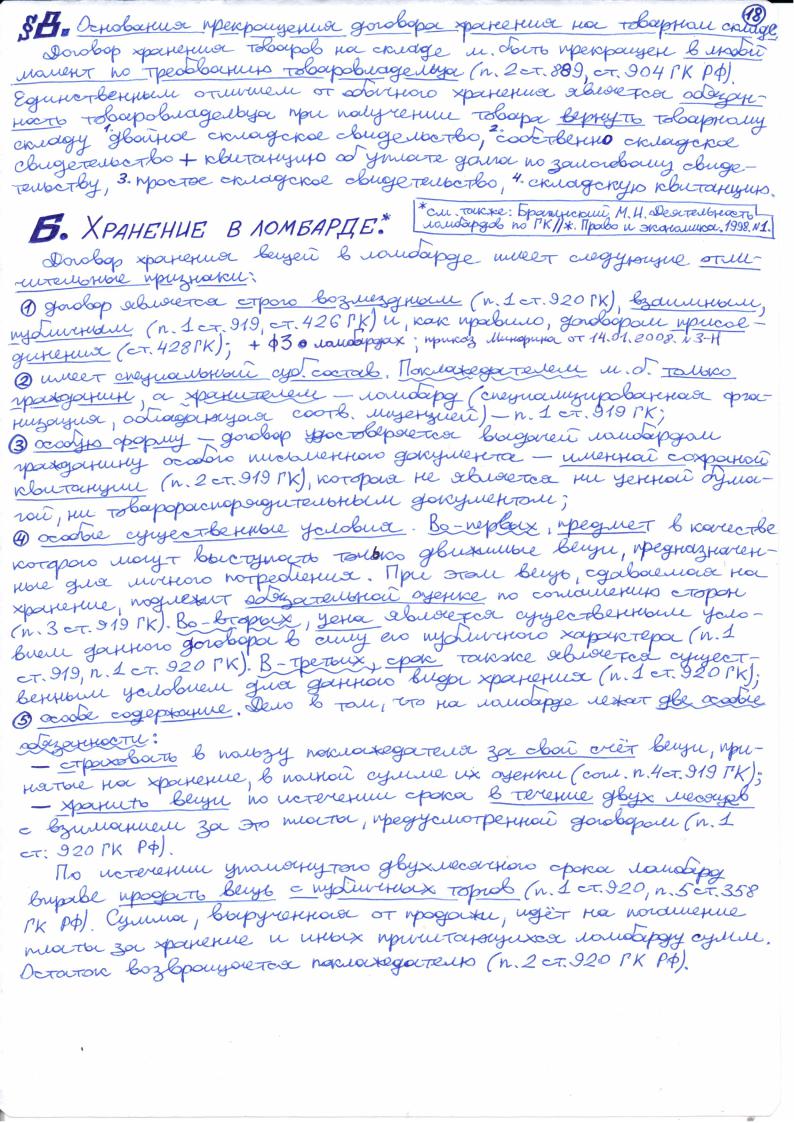 18
§В. Основания прекращения договора хранения на товарном складе
Договор хранения товаров на складе м. быть прекращен в любой
момент по требованию товаровладельца (п. 2 ст. 889, ст. 904 ГК РФ).
Единственным отличием от обычного хранения является обязан-
ность товаровладельца при получении товара вернуть товарному
складу 1. двойное складское свидельство, 2. собственно складское
свидетельство + квитанцию об уплате долга по залоговому свиде-
тельству, 3. простое складское свидетельство, 4. складскую квитанцию.
Б. ХРАНЕНИЕ В ЛОМБАРДЕ.*
*см. также: Брагинский М.И. Деятельность
ломбардов по ГК//ж. Право и экономика. 1998. №1.
Договор хранения вещей в ломбарде имеет следующие отли-
чительные признаки:
1 договор является строго возмездным (п. 1 ст. 920 ГК), взаимным,
публичным (п. 1 ст. 919, ст. 426 ГК) и, как правило, договором присое-
динения (ст. 428 ГК); + ФЗ о ломбардах; приказ Минфина от 14.01.2008. №3-Н
2 имеет специальный суб. состав. Поклажедателем м. б. только
гражданин, а хранителем – ломбард (специализированная орга-
низация, обладающая соотв. лицензией) – п. 1 ст. 919 ГК;
3 особую форму – договор удостоверяется выдачей ломбардом
гражданину особого письменного документа – именной сохраной
квитанции (п. 2 ст. 919 ГК), которая не является ни ценной бума-
гой, ни товарораспорядительным документом;
4 особые существенные условия. Во-первых, предмет в качестве
которого могут выступать только движимые вещи, предназначен-
ные для личного потребления. При этом вещь, сдаваемая на
хранение, подлежит обязательной оценке по соглашению сторон
(п. 3 ст. 919 ГК). Во-вторых, цена является существенным усло-
вием данного договора в силу его публичного характера (п. 1
ст. 919, п. 1 ст. 920 ГК). В-третьих, срок также является сущест-
венным условием для данного вида хранения (п. 1 ст. 920 ГК);
5 особе содержание. Дело в том, что на ломбарде лежат две особые
обязанности:
– страховать в пользу поклажедателя за свой счёт вещи, при-
нятые на хранение, в полной сумме их оценки (согл. п. 4 ст. 919 ГК);
– хранить вещи по истечении срока в течение двух месяцев
с взиманием за это платы, предусмотренной договором (п. 1
ст. 920 ГК РФ).
По истечении упомянутого двухмесячного срока ломбард
вправе продать вещь с публичных торгов (п. 1 ст. 920, п. 5 ст. 358
ГК РФ). Сумма, вырученная от продажи, идёт на погашение
платы за хранение и иных причитающихся ломбарду сумм.
Остаток возвращается поклажедателю (п. 2 ст. 920 ГК РФ).